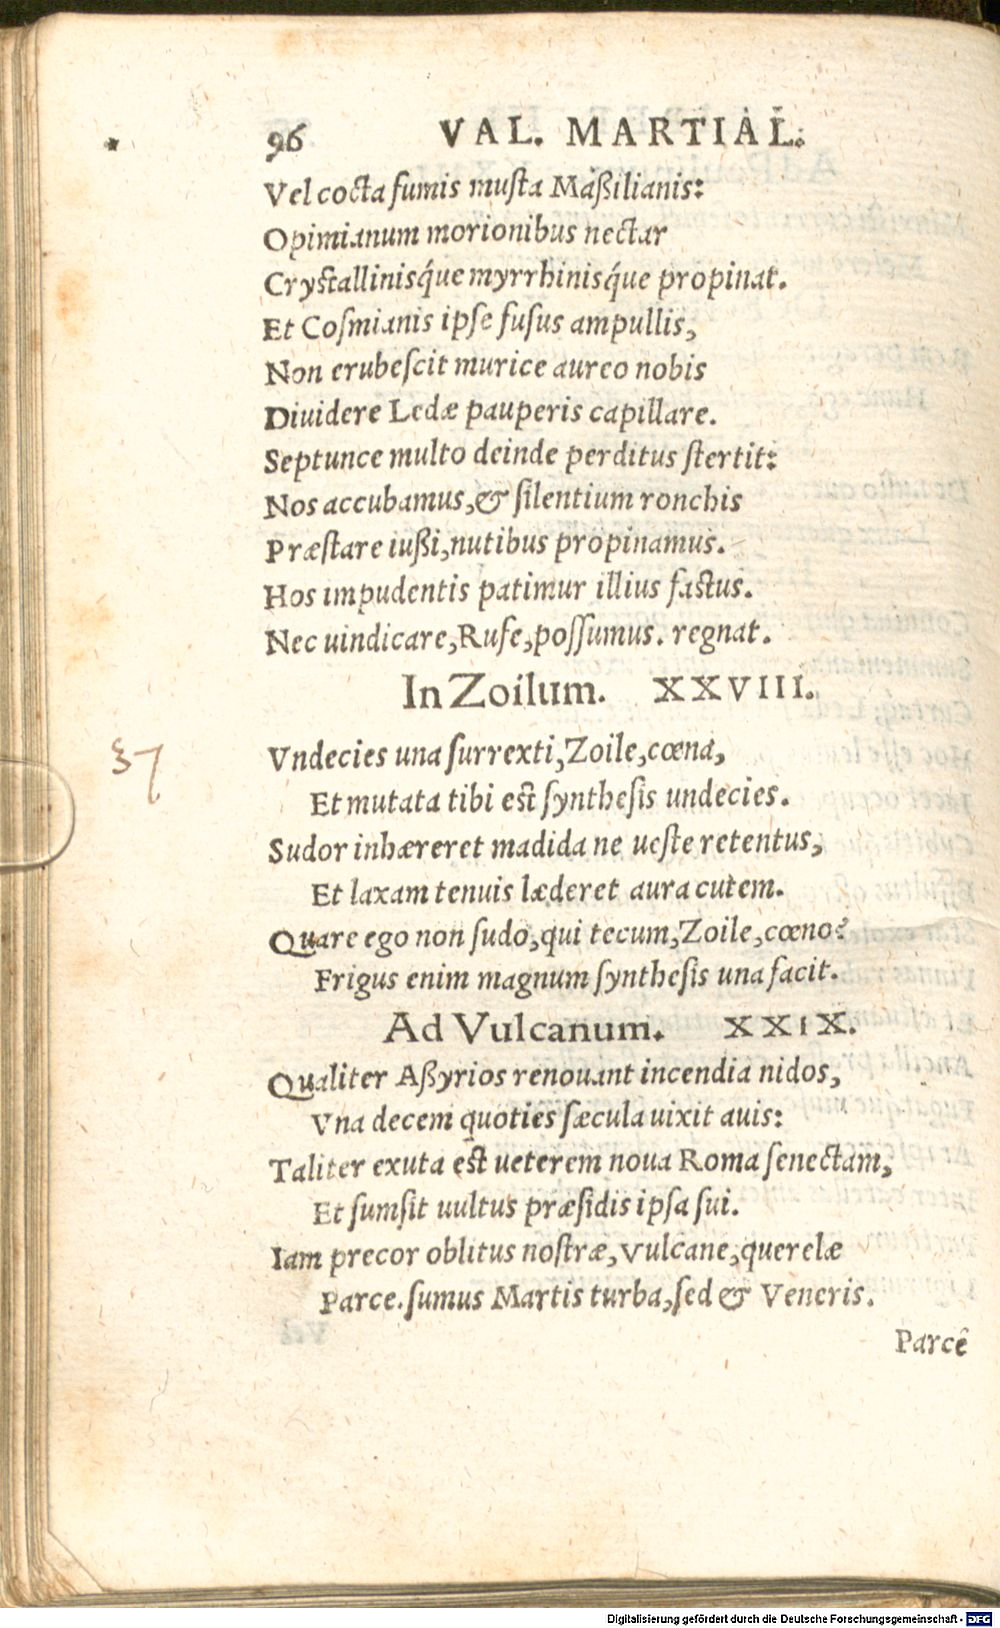 96 VAL. MARTIAL.
Vel cocta fumis musta Maßilianis:
Opimianum morionibus nectar
Crystallinisq́ue myrrhinisq́ue propinat.
Et Cosmianis ipse fusus ampullis,
Non erubescit murice aureo nobis
Diuidere Ledæ pauperis capillare.
Septunce multo deinde perditus stertit:
Nos accubamus, & silentium ronchis
Præstare iußi, nutibus propinamus.
Hos impudentis patimur illius fastus.
Nec uindicare, Rufe, possumus. regnat.
In Zoilum. XXVIII.
37
Vndecies una surrexti, Zoile, cœna,
Et mutata tibi est synthesis undecies.
Sudor inhæreret madida ne ueste retentus,
Et laxam tenuis læderet aura cutem.
Quare ego non sudo, qui tecum, Zoile, cœno?
Frigus enim magnum synthesis una facit.
Ad Vulcanum. XXIX.
Qualiter Aßyrios renouant incendia nidos,
Vna decem quoties sæcula uixit auis:
Taliter exuta est ueterem noua Roma senectam,
Et sumsit uultus præsidis ipsa sui.
Iam precor oblitus nostræ, Vulcane, querelæ
Parce. sumus Martis turba, sed & Veneris.
Parcê
Digitalisierung gefördert durch die Deutsche Forschungsgemeinschaft - DFG